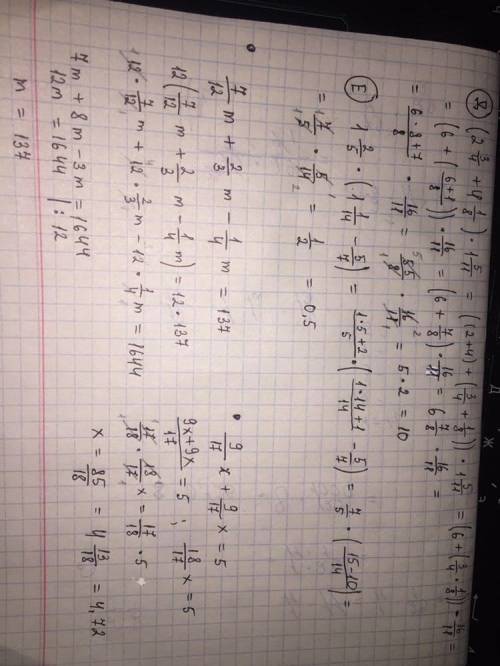 Д) (2 3/4 + 4 1/8) · 1 5/11 = ((2+4) + (3/4 + 1/8)) · 1 5/11 = (6 + (3/4 · 1/8)) · 16/11 =
= (6 + (6+1/8)) · 16/11 = (6 + 7/8) · 16/11 = 6 7/8 · 16/11 =
= 6·8+7/8 · 16/11 = 55/8 · 16/11 = 5 · 2 = 10
Е) 1 2/5 · (1 1/14 - 5/7) = 1·5+2/5 · (1·14+1/14 - 5/7) = 7/5 · (15-10/14) =
= 7/5 · 5/14 = 1/2 = 0,5
7/12 m + 2/3 m - 1/4 m = 137
12(7/12 m + 2/3 m - 1/4 m) = 12 · 137
12 · 7/12 m + 12 · 2/3 m - 12 · 1/4 m = 1644
7m + 8m - 3m = 1644
12m = 1644 | : 12
m = 137
9/17 x + 9/17 x = 5
9x+9x/17 = 5 ; 18/17 x = 5
17/18 · 18/17 x = 17/18 · 5
x = 85/18 = 4 13/18 = 4,72